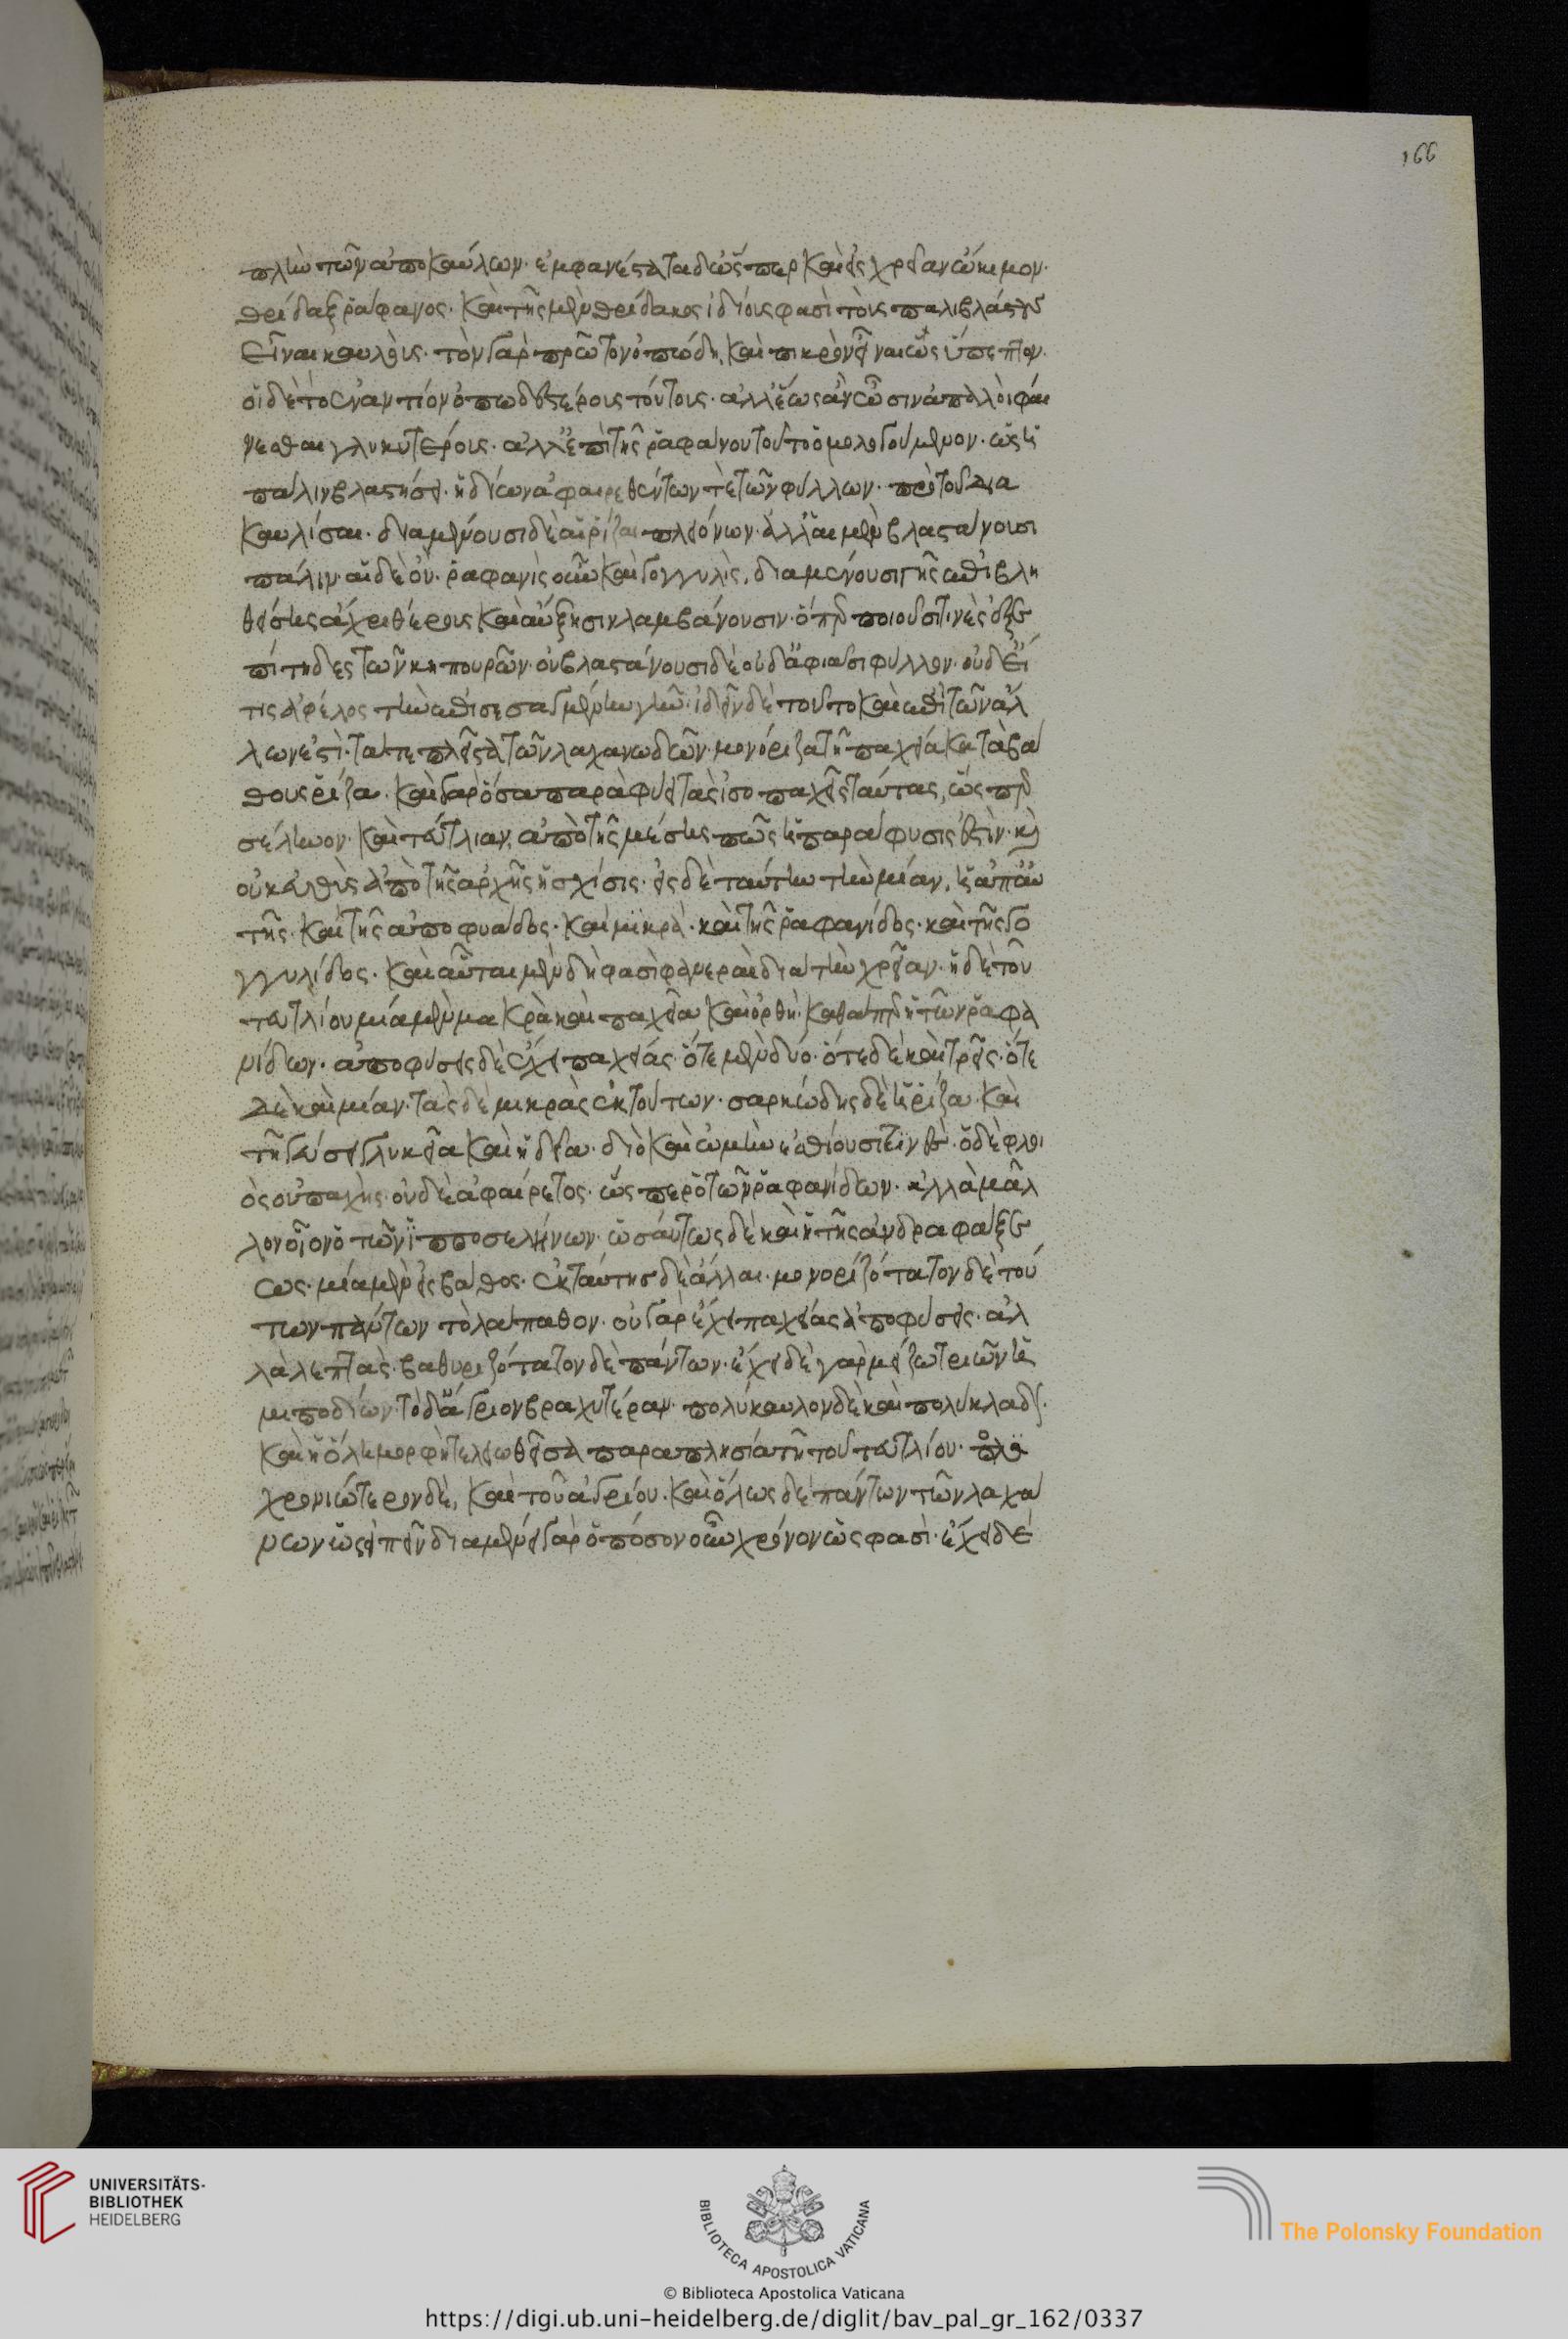 166
πλὴν τῶν ἀποκαύλων· ἐμφανέστατα δ' ὥσπερ καὶ εἰς χρείαν ὤκιμον·
θρίδαξ ῥάφανος· καὶ τῆς μὲν θρίδακος ἰδίους φασὶ τοὺς παλιβλαστεῖς
εἶναι καυλοὺς· τὸν γὰρ πρῶτον ὀπώδη, καὶ πικρὸν εἶναι ὡς ἄπεπτον·
οἱ δὲ τὸ ἐναντίον ὀπωδεστέροις τούτοις· ἀλλ' ἕως ἂν ὦσιν ἁπαλοὶ φαί
νεσθαι γλυκυτέροις· ἀλλ' ἐπὶ τῆς ῥαφάνου τοῦτο ὁμολογούμενον· ὡς ἡ
παλινβλαστήσει· ἡδίων ἀφαιρεθέντων τε τῶν φύλλων· πρὸ τοῦ δια
καυλίσαι· διαμένουσι δὲ αἱ ῥίζαι πλειόνων· ἀλλ' αἱ μὲν βλαστάνουσι
πάλιν· αἱ δὲ οὐ· ῥαφανὶς οὖν καὶ γογγυλὶς, διαμένουσι γῆς ἐπιβλη
θείσης ἄχρι θέρους καὶ αὔξησιν λαμβάνουσιν· ὅπερ ποιοῦσί τινες ἐξε
πίτηδες τῶν κηπουρῶν· οὐ βλαστάνουσι δὲ οὐδ' ἀφιᾶσι φύλλον· οὐδ' εἴ
τις ἀφέλοι τὴν ἐπισεσαγμένην γῆν· ἰδεῖν δὲ τοῦτο καὶ ἐπὶ τῶν ἄλ
λων ἐστὶ· τά τε πλεῖστα τῶν λαχανωδῶν· μονόριζα τῇ παχείᾳ κατὰ βά
θους ῥίζα· καὶ γὰρ ὅσα παραφύει τὰς ἰσοπαχεῖς ταύτας, ὥσπερ
σέλινον· καὶ τεύτλιον, ἀπὸ τῆς μέσης πως ἡ παράφυσις ἐστὶν· καὶ
οὐκ εὐθὺς ἀπὸ τῆς ἀρχῆς ἡ σχίσις· εἰς δὲ ταύτην τὴν μίαν, ἡ ἀπ' αὐ
τῆς· καὶ τῆς ἀποφυάδος· καὶ μικρὰ· καὶ τῆς ῥαφανίδος· καὶ τῆς γο
γγυλίδος· καὶ αὗται μὲν δή φασι φανεραὶ διὰ τὴν χρείαν· ἡ δὲ τοῦ
τευτλίου μία μὲν μακρὰ καὶ παχεῖα καὶ ὀρθὴ· καθάπερ ἡ τῶν ῥαφα
νίδων· ἀποφύσεις δὲ ἔχει παχείας· ὁτὲ μὲν δύο· ὁτὲ δὲ καὶ τρεῖς· ὁτὲ
δὲ καὶ μίαν· τὰς δὲ μικρὰς ἐκ τούτων· σαρκώδης δὲ ἡ ῥίζα· καὶ
τῇ γεύσει γλυκεῖα καὶ ἡδεῖα· διὸ καὶ ὠμὴν ἐσθίουσί τινες· ὁ δὲ φλοι
ὸς οὐ παχὺς· οὐδὲ ἀφαίρετος· ὥσπερ ὁ τῶν ῥαφανίδων· ἀλλὰ μᾶλ
λον οἷον ὁ τῶν ἱπποσελίνων· ὡσαύτως δὲ καὶ ἡ τῆς ἀνδραφάξε
ως· μία μὲν εἰς βάθος· ἐκ ταύτης δὲ ἄλλαι· μονοριζότατον δὲ τού
των πάντων τὸ λάπαθον· οὐ γὰρ ἔχει παχείας ἀποφύσεις· ἀλ
λὰ λεπτὰς· βαθυριζότατον δὲ πάντων· ἔχει δὲ γὰρ μείζω τριῶν ἡ
μιποδίων· τὸ δ' ἄγριον βραχυτέραν· πολύκαυλον δὲ καὶ πολύκλαδον·
καὶ ἡ ὅλη μορφὴ τελειωθεῖσα παραπλησία τῇ τοῦ τευτλίου· πολυ
χρονιώτερον δὲ, καὶ τοῦ ἀγρίου· καὶ ὅλως δὲ πάντων τῶν λαχά
νων ὡς εἰπεῖν διαμένει γὰρ ὁπόσον οὖν χρόνον ὥς φασι· ἔχει δὲ
UNIVERSITÄTS-
BIBLIOTHEK
HEIDELBERG
BIBLIOTECA APOSTOLICA VATICANA
The Polonsky Foundation
© Biblioteca Apostolica Vaticana
https://digi.ub.uni-heidelberg.de/diglit/bav_pal_gr_162/0337